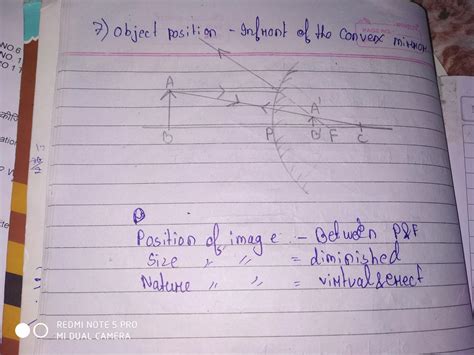 7) Object position - Infront of the convex mirror
A
A'
B
P
B'
F
C
Position of image - Between P&F
Size " " = diminished
Nature " " = virtual & erect
REDMI NOTE 5 PRO
MI DUAL CAMERA